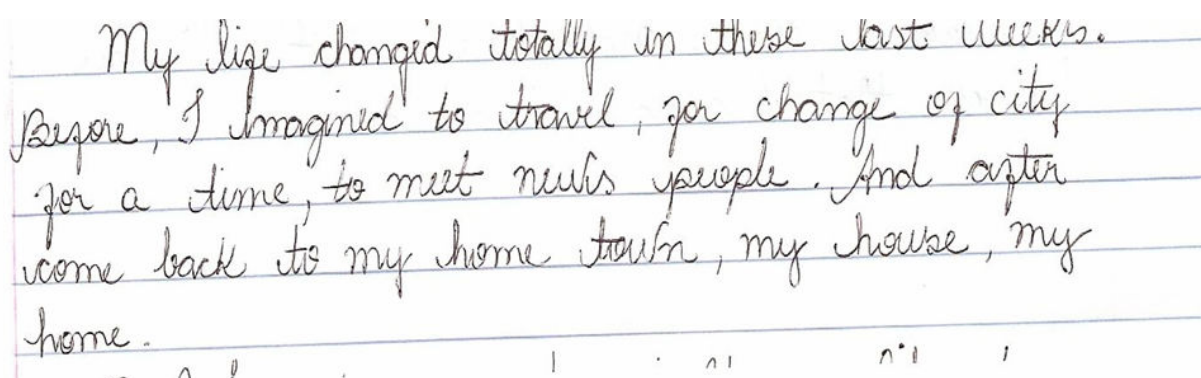 My life changed totally in these last weeks.
Before, I imagined to travel, for change of city
for a time, to meet news people. And after
come back to my home town, my house, my
home.